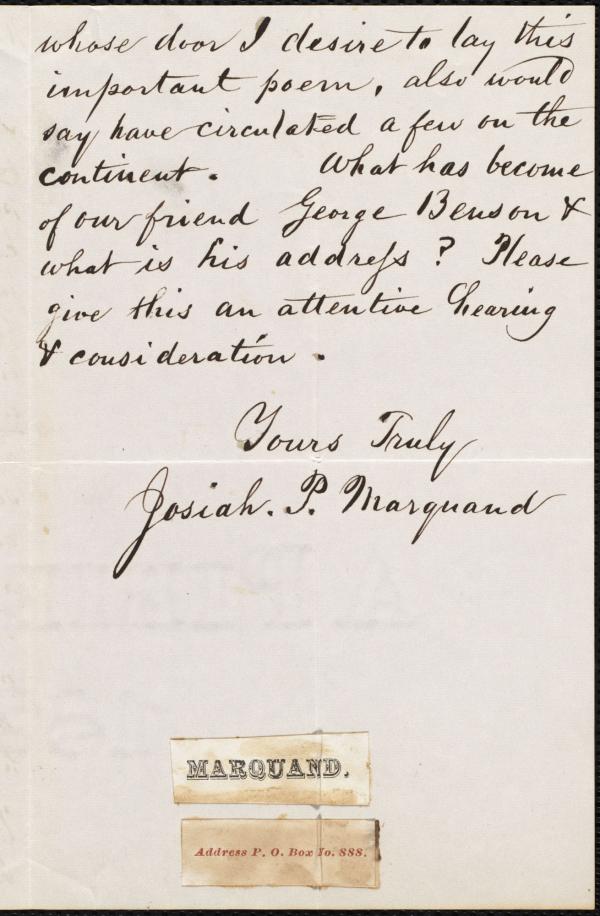 whose door I desire to lay this
important poem, also would
say have circulated a few on the
continent. What has become
of our friend George Benson &
what is his addreſs? Please
give this an attentive hearing
& consideration.
Yours Truly
Josiah. P. Marquand
MARQUAND.
Address P. O. Box No. 888.